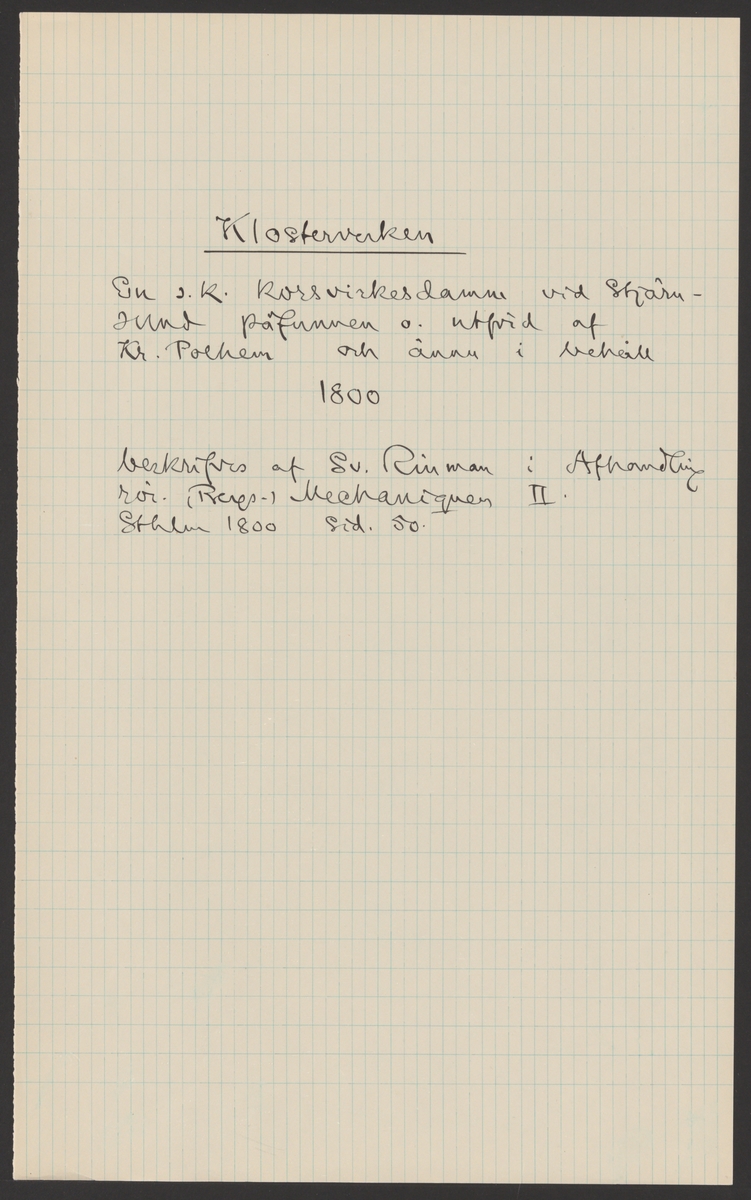 Klosterverken
En s.k. korsvirkesdamm vid Stjärn-
sund påfunnen o. utförd af
Kr. Polhem och ännu i behåll
1800
beskrifves af Sv. Rinman i Afhandling
rör. (Bergs-) Mechaniquen II.
Sthlm 1800 Sid. 50.